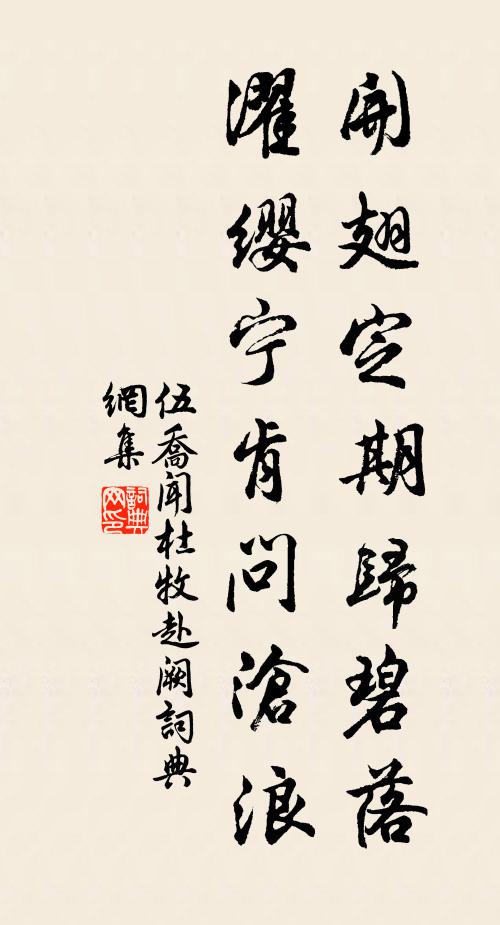 開翅定期歸碧落
濯纓宁肯問滄浪
伍喬聞杜牧赴阙詞典
網集
詞典
网印